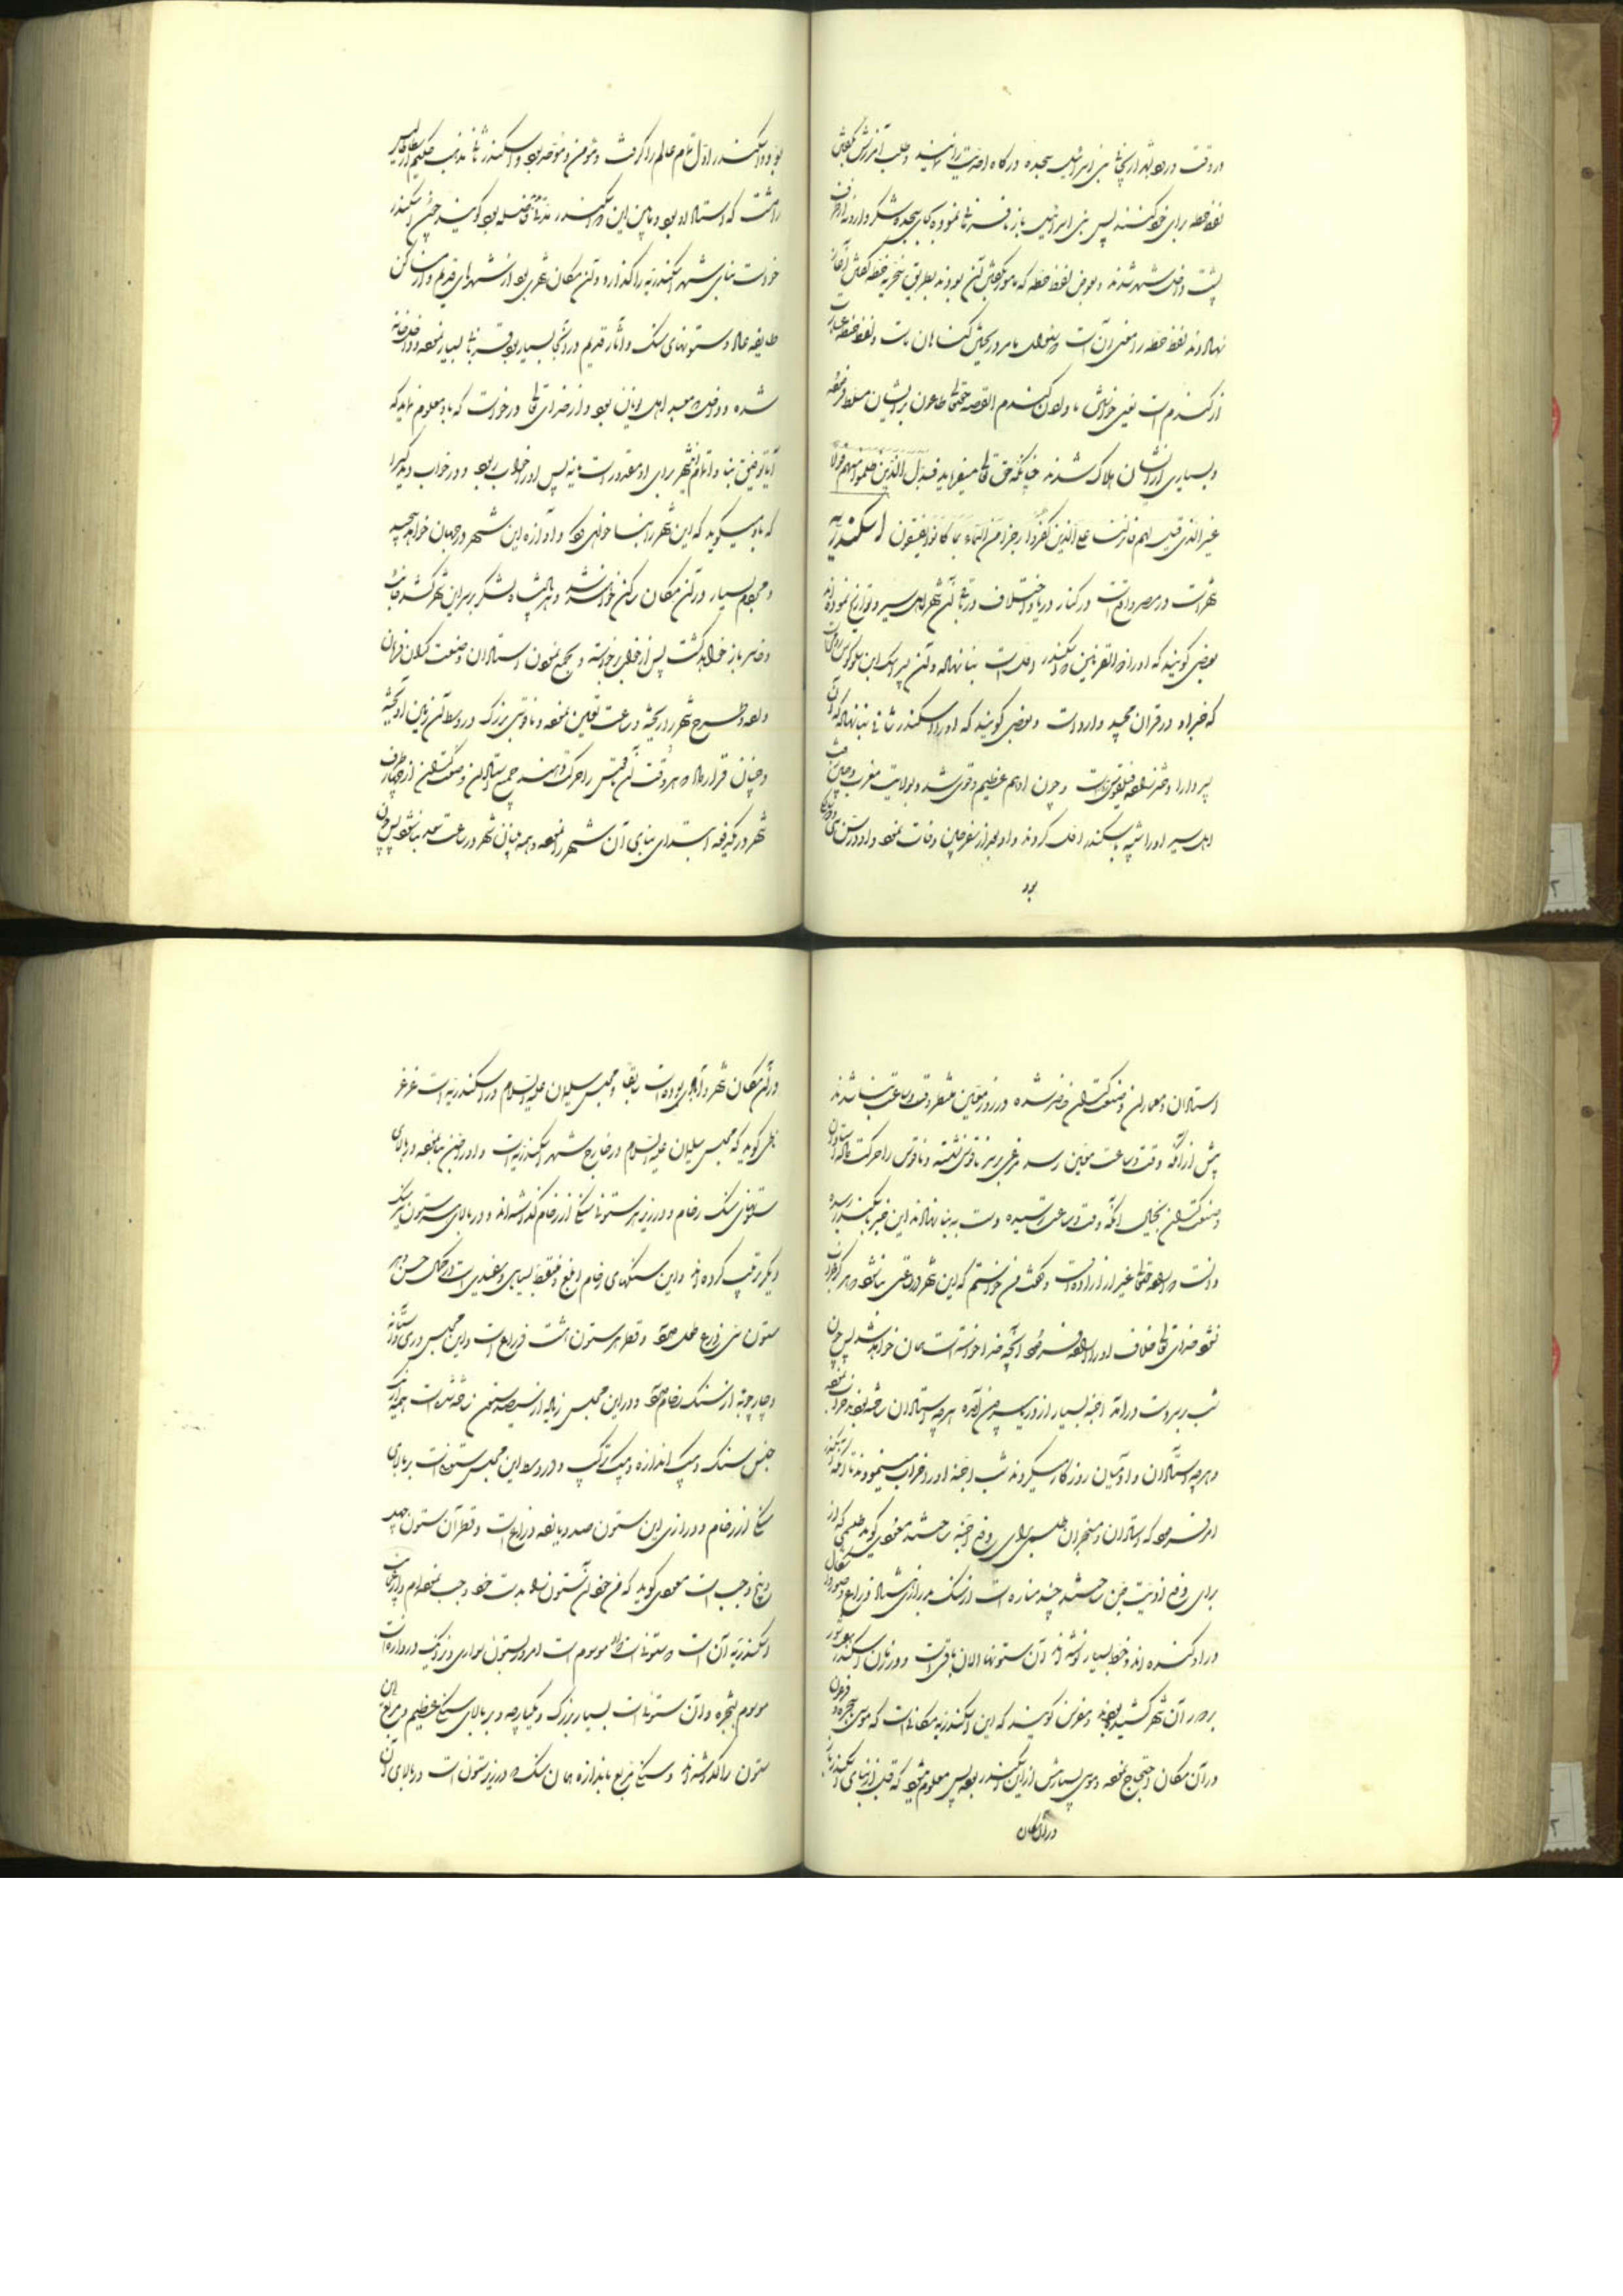 در وقت در بنی اسرائیل سجده درگاه طلب آمرزش
لفظ حطه برای خود کنند پس بنی اسرائیل باز نافرمانی نموده بجای سجده و شکر
پشت داخل شهر شدند و بعوض لفظ حطه که مامور بگفتن آن بودند بطریق سخریه حنطه گفتن آغاز
نهادند لفظ حطه را معنی آن است که بخشش گناهان ماست و لفظ حنطه عبارت
از گندم است یعنی خواهش ما دادن گندم القصه حقتعالی طاعون بر ایشان مسلط فرموده
و بسیاری از ایشان هلاک شدند چنانکه حق تعالی میفرماید فبدل الذین ظلموا منهم قولا
غیر الذی قیل لهم فانزلنا علی الذین کفروا رجزا من السماء بما کانوا یفسقون اسکندریه
شهر است در مصر واقع است در کنار دریا و اختلاف در بنای آن شهر اهل سیر و تواریخ نموده اند
بعضی گویند که او را ذوالقرنین که اسکندر اول است بنا نهاده و آن پسر
که خبر او در قرآن مجید وارد است و بعضی گویند که او را اسکندر ثانی بنا نهاده که آن
پسر دارا دختر فیلقوس است و چون او هم عظیم و قوی شد و بولایت مغرب و چین رفت
اهل سیر او را شبیه باسکندر اول کردند و او بعد از سفر چین وفات نمود و او در سن
بود
بود و اسکندر اول تمام عالم را گرفت و مؤمن و موحد بود و اسکندر ثانی مذهب حکیم ارسطاطالیس
داشت که استاد او بود و مابین این دو اسکندر مدتهای فاصله بود گویند چون اسکندر
خواست بنای شهر اسکندریه را گذارد و آن مکان شهری بود از شهرهای قدیم و از مساکن
طایفه عاد و ستونهای سنگ و آثار قدیم در آنجا بسیار بود قربانی بسیار نموده و
شده و داخل معبد اهل یونان بود و از خدای تعالی درخواست که باو معلوم نماید که
آیا توفیق بنا و اتمام شهر برای او مقدور است یا نه پس او را خواب ربود و در خواب دید کسی را
که باو میگوید که این شهر را بنا خواهی کرد و آوازه این شهر در جهان خواهد پیچید
و مردم بسیار در آن مکان ساکن خواهند شد و هر پادشاه لشکر بر سر این شهر کشد خائب
و خاسر باز خواهد گشت پس از خواب برخاسته و جمع نمودن استادان و صنعت گران فرمان
داده و طرح شهر را ریخته و ساعت تعیین نموده و ناقوس بزرگ در وسط آن زمین آویخته
و چنان قرار داد که هر وقت آن ناقوس را حرکت دهند جمیع استادان و صنعت گران از چهار طرف
شهر در یکدفعه ابتدای بنای آن شهر را نموده و همه بنیان شهر در ساعت سعد بنا شود پس چون
استادان و معماران و صنعت گران حاضر شده در روز معین منتظر وقت و ساعت بنا شدند
پیش از آنکه وقت و ساعت معین رسد مرغی بر سر ناقوس نشسته و ناقوس را حرکت داده استادان
و صنعت گران بخیال اینکه وقت و ساعت رسیده دست به بنا نهادند این خبر باسکندر رسیده
دانست که حقتعالی غیر از آن اراده داشت و گفت من خواستم که این شهر در وقتی بنا شود که هرگز خراب
نشود خدای تعالی خلاف او را اراده فرمود آنچه خدا خواسته است همان خواهد شد پس چون
شب بر سر دست درآمد اجنه بسیار از دریا بیرون آمده هر چه استادان ساخته بودند خراب نموده
و هر چه استادان و آدمیان روز کار میکردند شب اجنه او را خراب مینمودند تا آنکه اسکندر
امر فرمود که استادان و منجمان طلسمی برای دفع اجنه ساختند مسعودی گوید طلسمی که از
برای دفع اذیت جن ساختند چند مناره است از سنگ بدرازی هشتاد ذراع و صورت و اشکال
در او کنده اند و خط بسیار نوشته اند آن ستونها الان باقی است و در زمان اسکندر سور
بر دور آن شهر کشیده بودند و بعضی گویند که این اسکندریه مکانی است که موسی با سحره فرعون
در آن مکان احتجاج نموده و موسی بسیار پیش از این اسکندر بوده پس معلوم میشود که قبل از بنای اسکندریه
در آن مکان
در آن مکان شهر و آبادی بوده است سابقا و مجلس سلیمان علیه السلام در اسکندریه است
گوید که مجلس سلیمان علیه السلام در خارج شهر اسکندریه است و او را جن بنا نموده در بالای
ستونهای سنگ رخام و در زیر هر ستون سنگی از رخام گذاشته اند و در بالای هر ستون نیز سنگ
دیگر ترتیب کرده اند و این سنگهای رخام ابقع و منقط بسیاهی و سفیدی است در کمال حسن و هر
ستون سی ذرع طول دارد و قطر هر ستون هشت ذراع است و این مجلس دری و آستانه
و چارچوبه از سنگ رخام دارد و در این مجلس زیاده از سیصد ستون ساخته شده است همه از یک
جنس سنگ و یک اندازه و یک ترکیب و در وسط این مجلس ستونی است بر بالای
سنگی از رخام و درازی این ستون صد و یازده ذراع است و قطر آن ستون چهل
و پنج وجب است مسعودی گوید که من خود آن ستون را بدست خود وجب نموده ام و از عجایب
اسکندریه آن است که ستونی است که موسوم است امروز بستون سواری و نزدیک دروازه ایست
موسوم بشجره و آن ستونی است بسیار بزرگ و یکپارچه و بر بالای سنگ عظیم و مربع این
ستون را گذاشته اند و سنگی مربع باندازه همان سنگ که در زیر ستون است در بالای آن